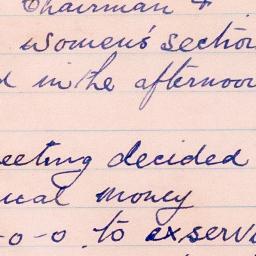 Chairman +
Women's Section
d in the afternoon
eeting decided
ical money
-o-o to exserv